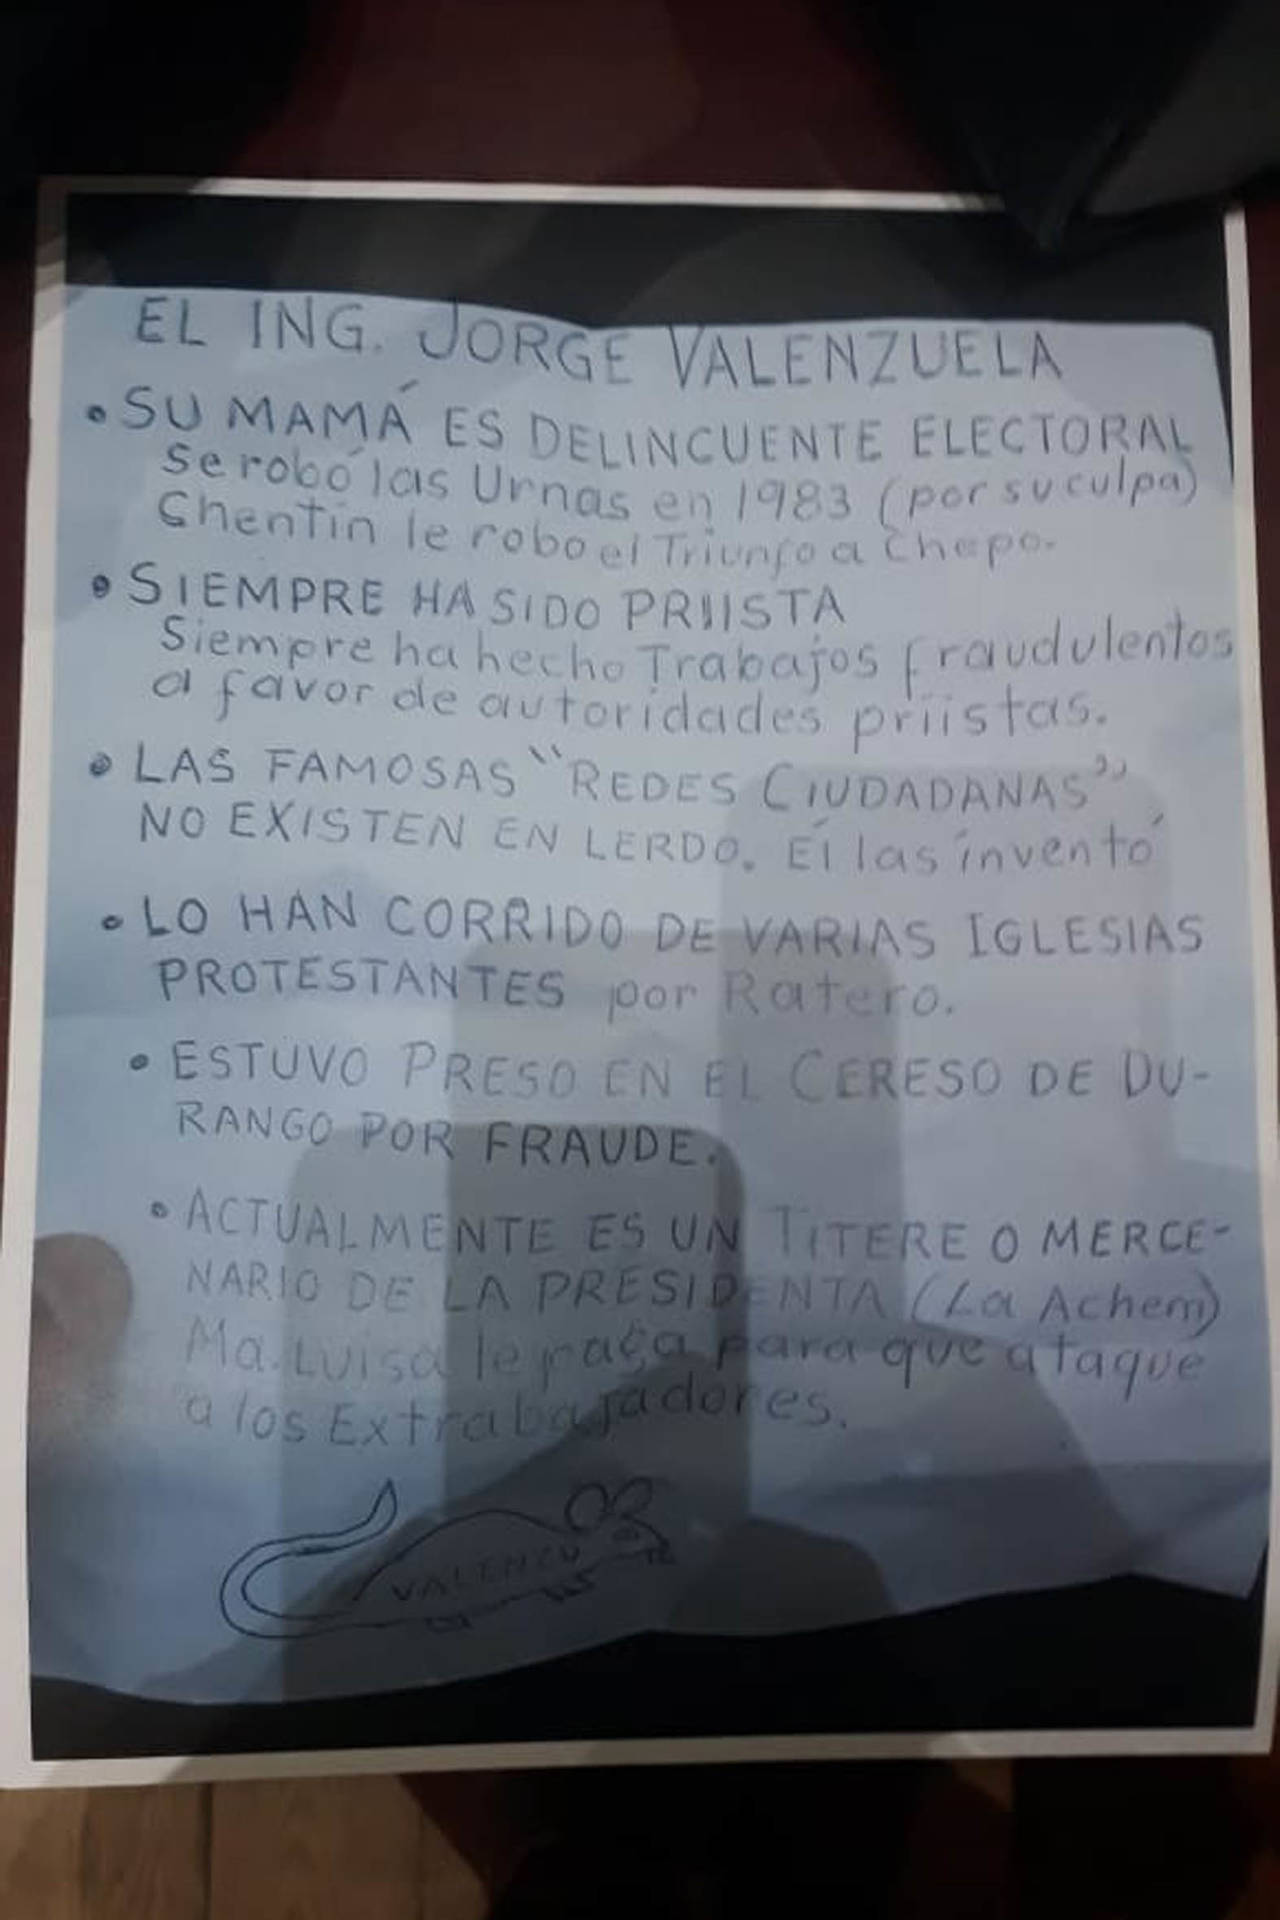 EL ING. JORGE VALENZUELA
• SU MAMÁ ES DELINCUENTE ELECTORAL
Se robó las Urnas en 1983 (por su culpa)
Chentín le robo el Triunfo a Chepo.
• SIEMPRE HA SIDO PRIISTA
Siempre ha hecho Trabajos fraudulentos
a favor de autoridades priistas.
• LAS FAMOSAS "REDES CIUDADANAS"
NO EXISTEN EN LERDO. Él las inventó
• LO HAN CORRIDO DE VARIAS IGLESIAS
PROTESTANTES por Ratero.
• ESTUVO PRESO EN EL CERESO DE DU-
RANGO POR FRAUDE.
• ACTUALMENTE ES UN TITERE O MERCE-
NARIO DE LA PRESIDENTA (La Achem)
Ma. Luisa le paga para que ataque
a los Extrabajadores.
VALENZU